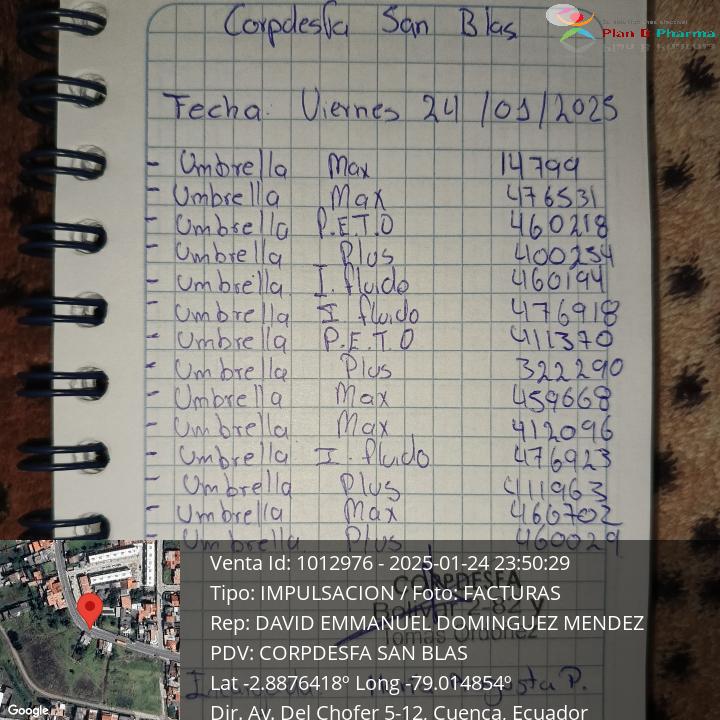 Corpdesfa San Blas
Plan B Pharma
Fecha: Viernes 24/01/2025
- Umbrella Max 14799
- Umbrella Max 476531
- Umbrella P.E.T.O 460218
- Umbrella Plus 400254
- Umbrella I. fluido 460194
- Umbrella I fluido 476918
- Umbrella P.E.T.O 411370
- Umbrella Plus 322290
- Umbrella Max 459668
- Umbrella Max 412096
- Umbrella I. fluido 476923
- Umbrella Plus 411963
- Umbrella Max 460702
- Umbrella Plus 460029
Venta Id: 1012976 - 2025-01-24 23:50:29
CORPDESFA
Tipo: IMPULSACION / Foto: FACTURAS
Bolivar 2-82 y
Rep: DAVID EMMANUEL DOMINGUEZ MENDEZ
Tomas Ordoñez
PDV: CORPDESFA SAN BLAS
Lat -2.8876418º Log -79.014854º
P.
Dir. Av. Del Chofer 5-12, Cuenca, Ecuador
Google